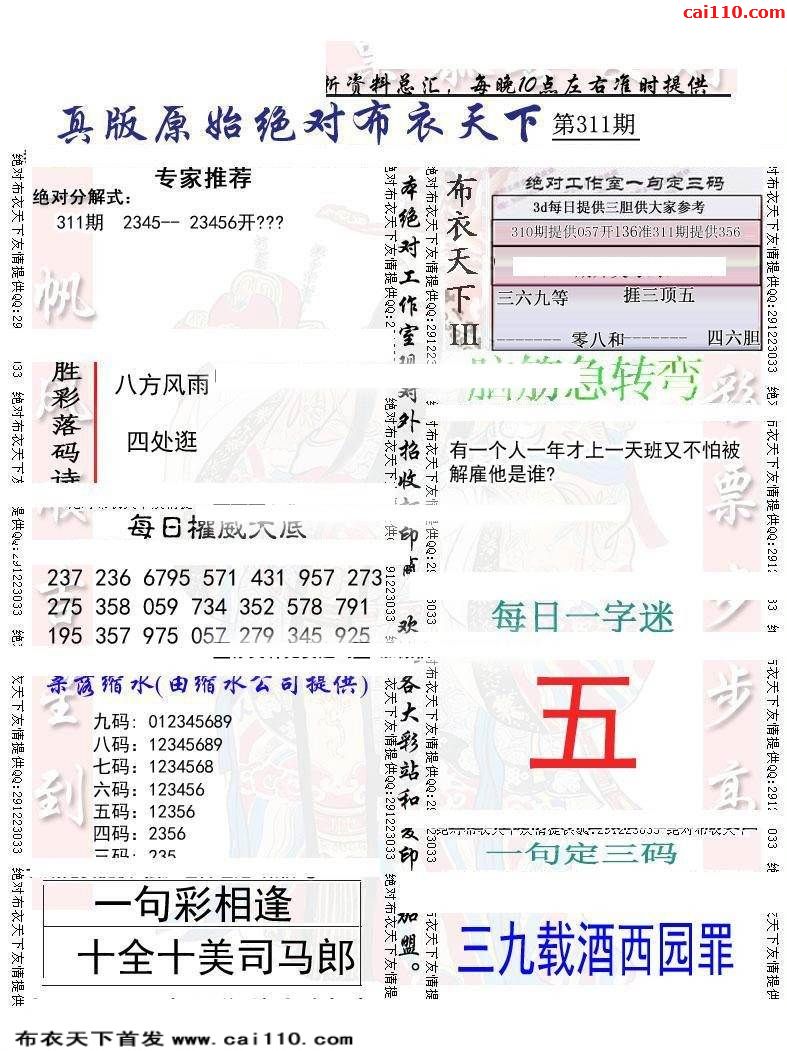 cai110.com
析资料总汇，每晚10点左右准时提供
真版原始绝对布衣天下 第311期
专家推荐
绝对分解式：
311期 2345-- 23456开???
胜彩落码诗
八方风雨
四处逛
每日权威大底
237 236 6795 571 431 957 273
275 358 059 734 352 578 791
195 357 975 057 279 345 925
(由缩水公司提供)
九码：012345689
八码：12345689
七码：1234568
六码：123456
五码：12356
四码：2356
三码：235
一句彩相逢
十全十美司马郎
本绝对工作室现对外招收
印
欢
各大彩站和
印
加盟。
布衣天下III
绝对工作室一句定三码
3d每日提供三胆供大家参考
310期提供057开136准311期提供356
三六九等 捱三顶五
-------- 零八和------- 四六胆
脑筋急转弯
有一个人一年才上一天班又不怕被
解雇他是谁?
每日一字迷
五
一句定三码
三九载酒西园罪
一帆风顺吉星到
彩票步步高
绝对布衣天下友情提供QQ:291223033
布衣天下首发 www.cai110.com